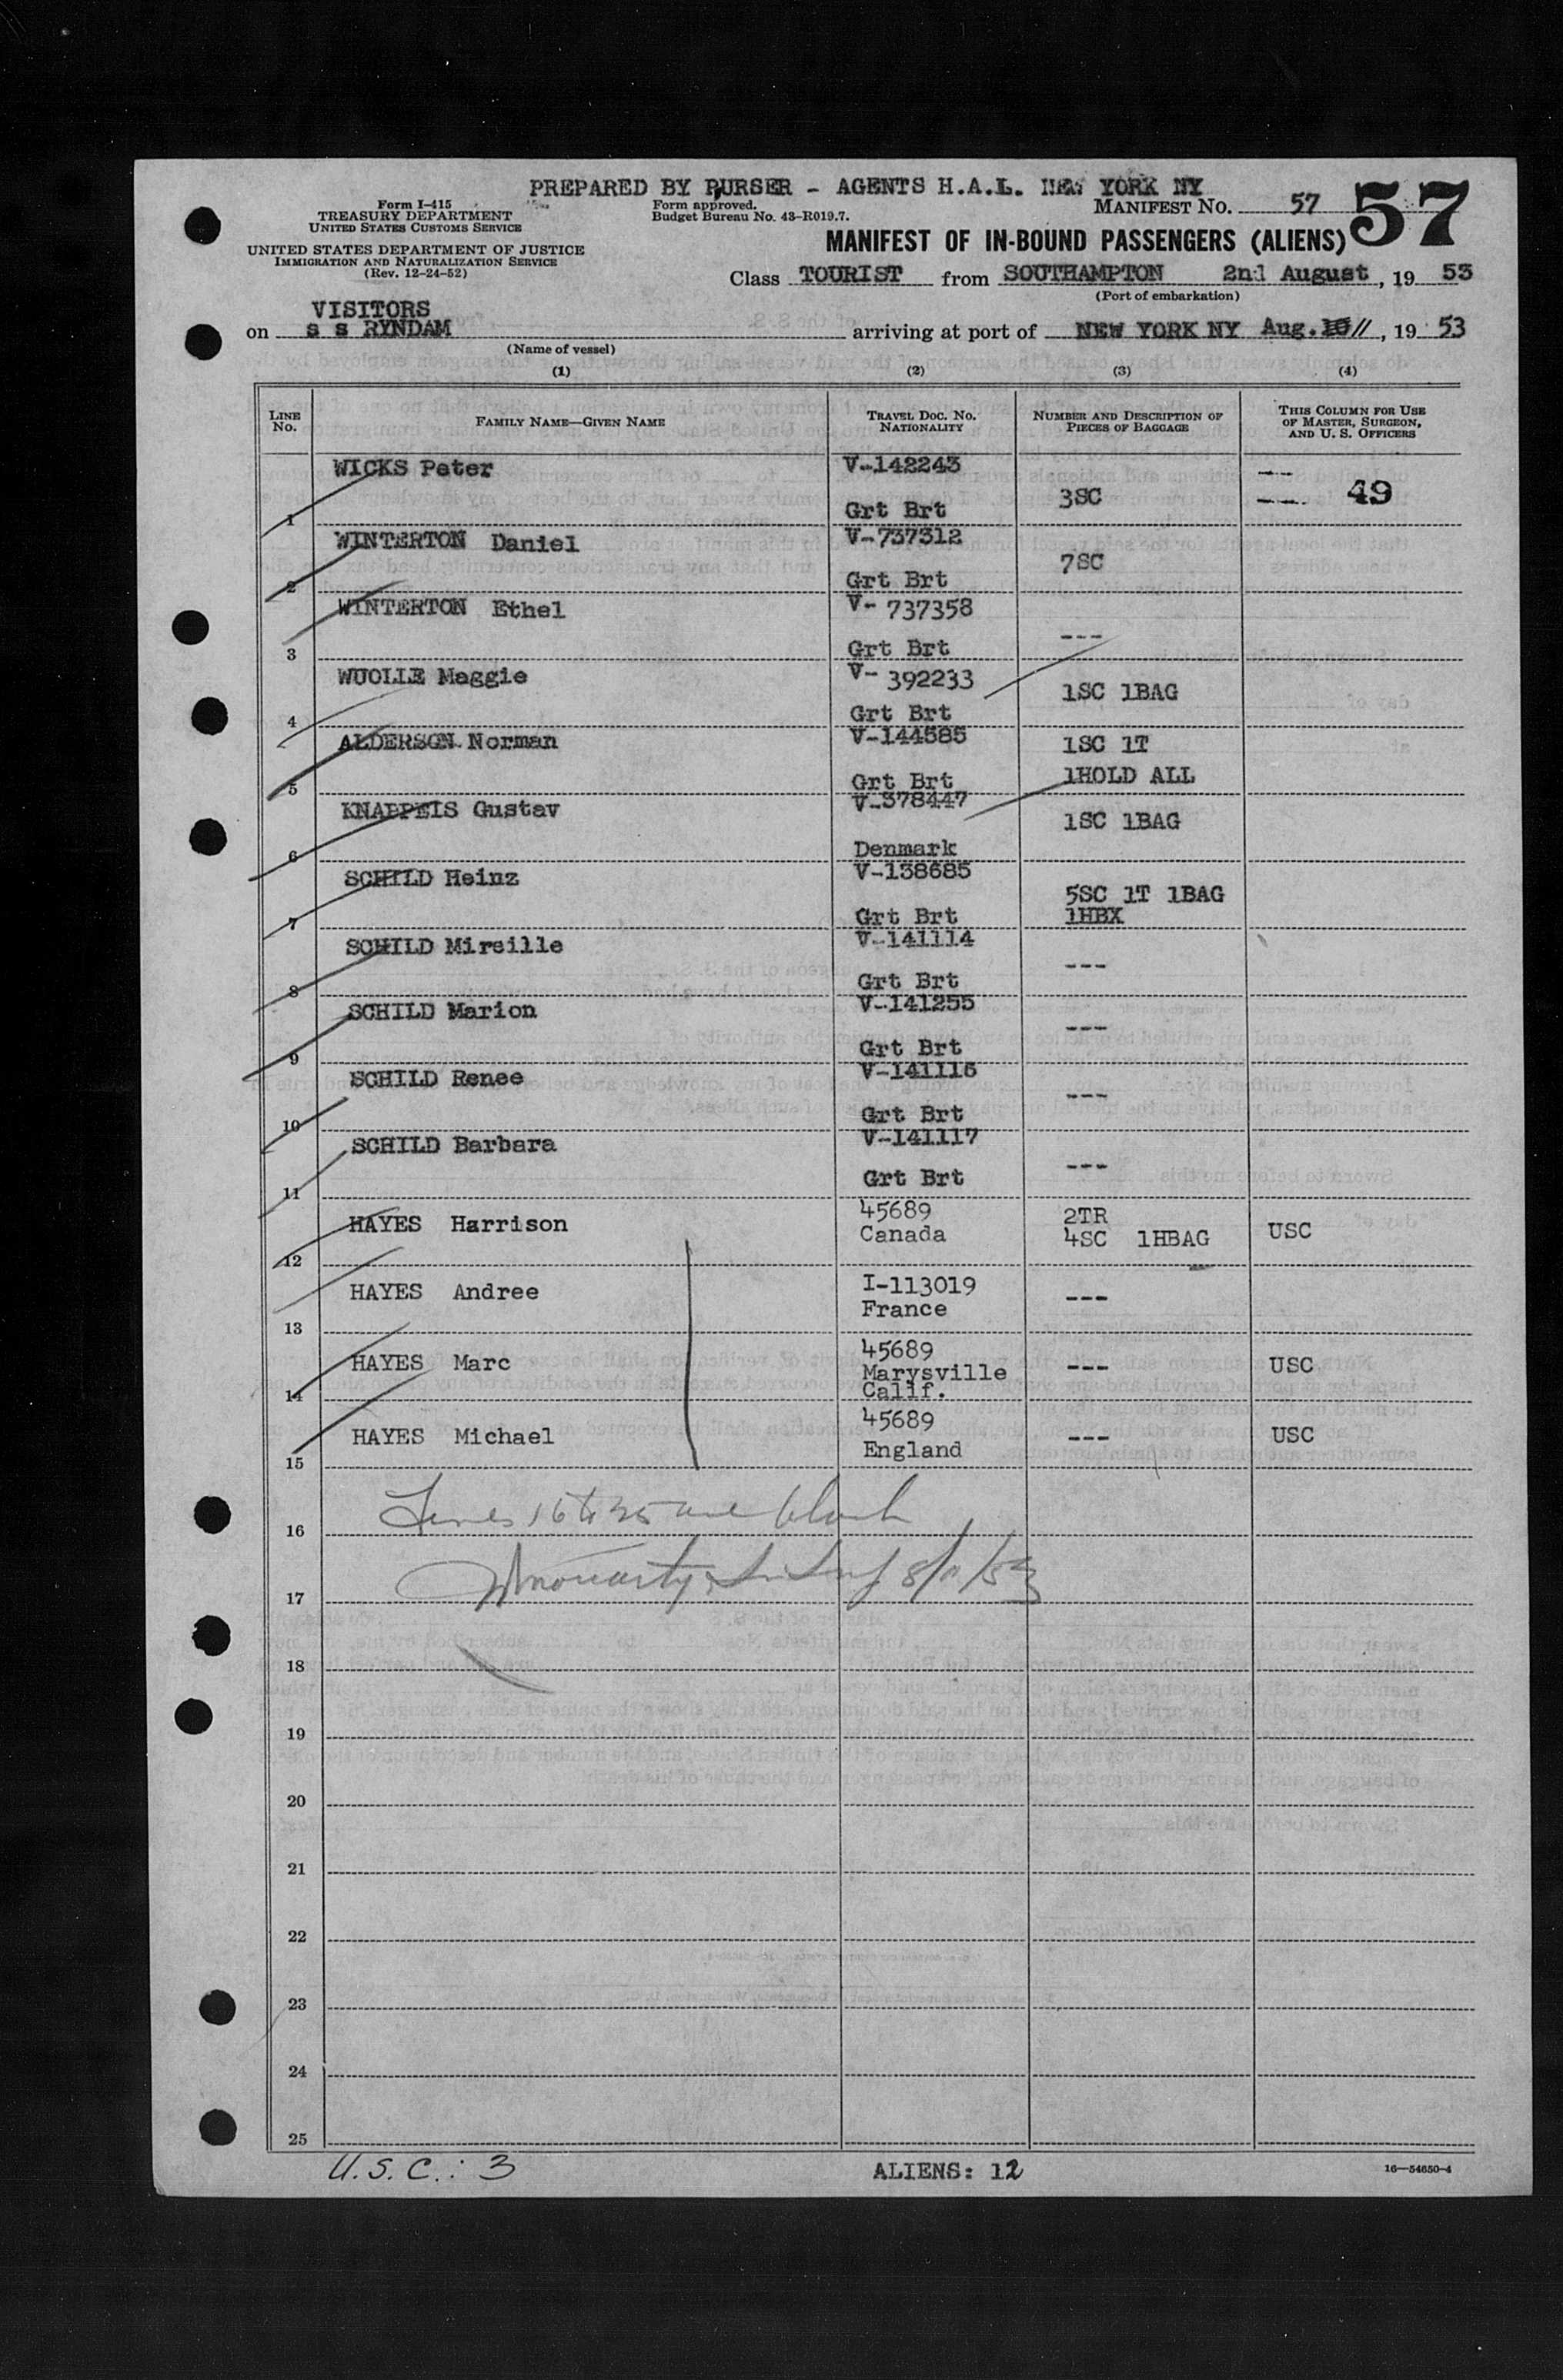 PREPARED BY PURSER - AGENTS H.A.L. NEW YORK NY
Form I-415
TREASURY DEPARTMENT
UNITED STATES CUSTOMS SERVICE
UNITED STATES DEPARTMENT OF JUSTICE
IMMIGRATION AND NATURALIZATION SERVICE
(Rev. 12-24-52)
Form approved.
Budget Bureau No. 43-R019.7.
MANIFEST No. 57
57
MANIFEST OF IN-BOUND PASSENGERS (ALIENS)
Class TOURIST from SOUTHAMPTON 2nd August, 19 53
(Port of embarkation)
VISITORS
on s s RYNDAM arriving at port of NEW YORK NY Aug. 11, 19 53
(Name of vessel)
(1) (2) (3) (4)
LINE No.
FAMILY NAME—GIVEN NAME
TRAVEL DOC. NO. NATIONALITY
NUMBER AND DESCRIPTION OF PIECES OF BAGGAGE
THIS COLUMN FOR USE OF MASTER, SURGEON, AND U. S. OFFICERS
1 WICKS Peter V-142243 Grt Brt 3SC --- ---. 49
2 WINTERTON Daniel V-737312 Grt Brt 7SC
3 WINTERTON Ethel V- 737358 Grt Brt ---
4 WUOLLE Maggie V- 392233 Grt Brt 1SC 1BAG
5 ALDERSON Norman V-144585 Grt Brt 1SC 1T 1HOLD ALL
6 KNAPPEIS Gustav V-378447 Denmark 1SC 1BAG
7 SCHILD Heinz V-138685 Grt Brt 5SC 1T 1BAG 1HBX
8 SCHILD Mireille V-141114 Grt Brt ---
9 SCHILD Marion V-141255 Grt Brt ---
10 SCHILD Renee V-141116 Grt Brt ---
11 SCHILD Barbara V-141117 Grt Brt ---
12 HAYES Harrison 45689 Canada 2TR 4SC 1HBAG USC
13 HAYES Andree I-113019 France ---
14 HAYES Marc 45689 Marysville Calif. --- USC
15 HAYES Michael 45689 England --- USC
16 Lines 16 to 25 are blank
17 8/11/53
18
19
20
21
22
23
24
25
U.S.C.: 3 ALIENS: 12 16—54650-4